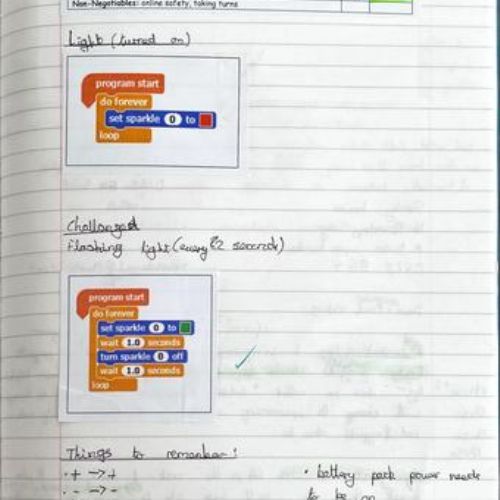 Non-Negotiables: online safety, taking turns
Light (turned on)
program start
do forever
set sparkle 0 to
loop
Challenge
flashing light (every 2 seconds)
program start
do forever
set sparkle 0 to
wait 1.0 seconds
turn sparkle 0 off
wait 1.0 seconds
loop
Things to remember!
· + -> +
· - -> -
· battery pack power needs
to be on